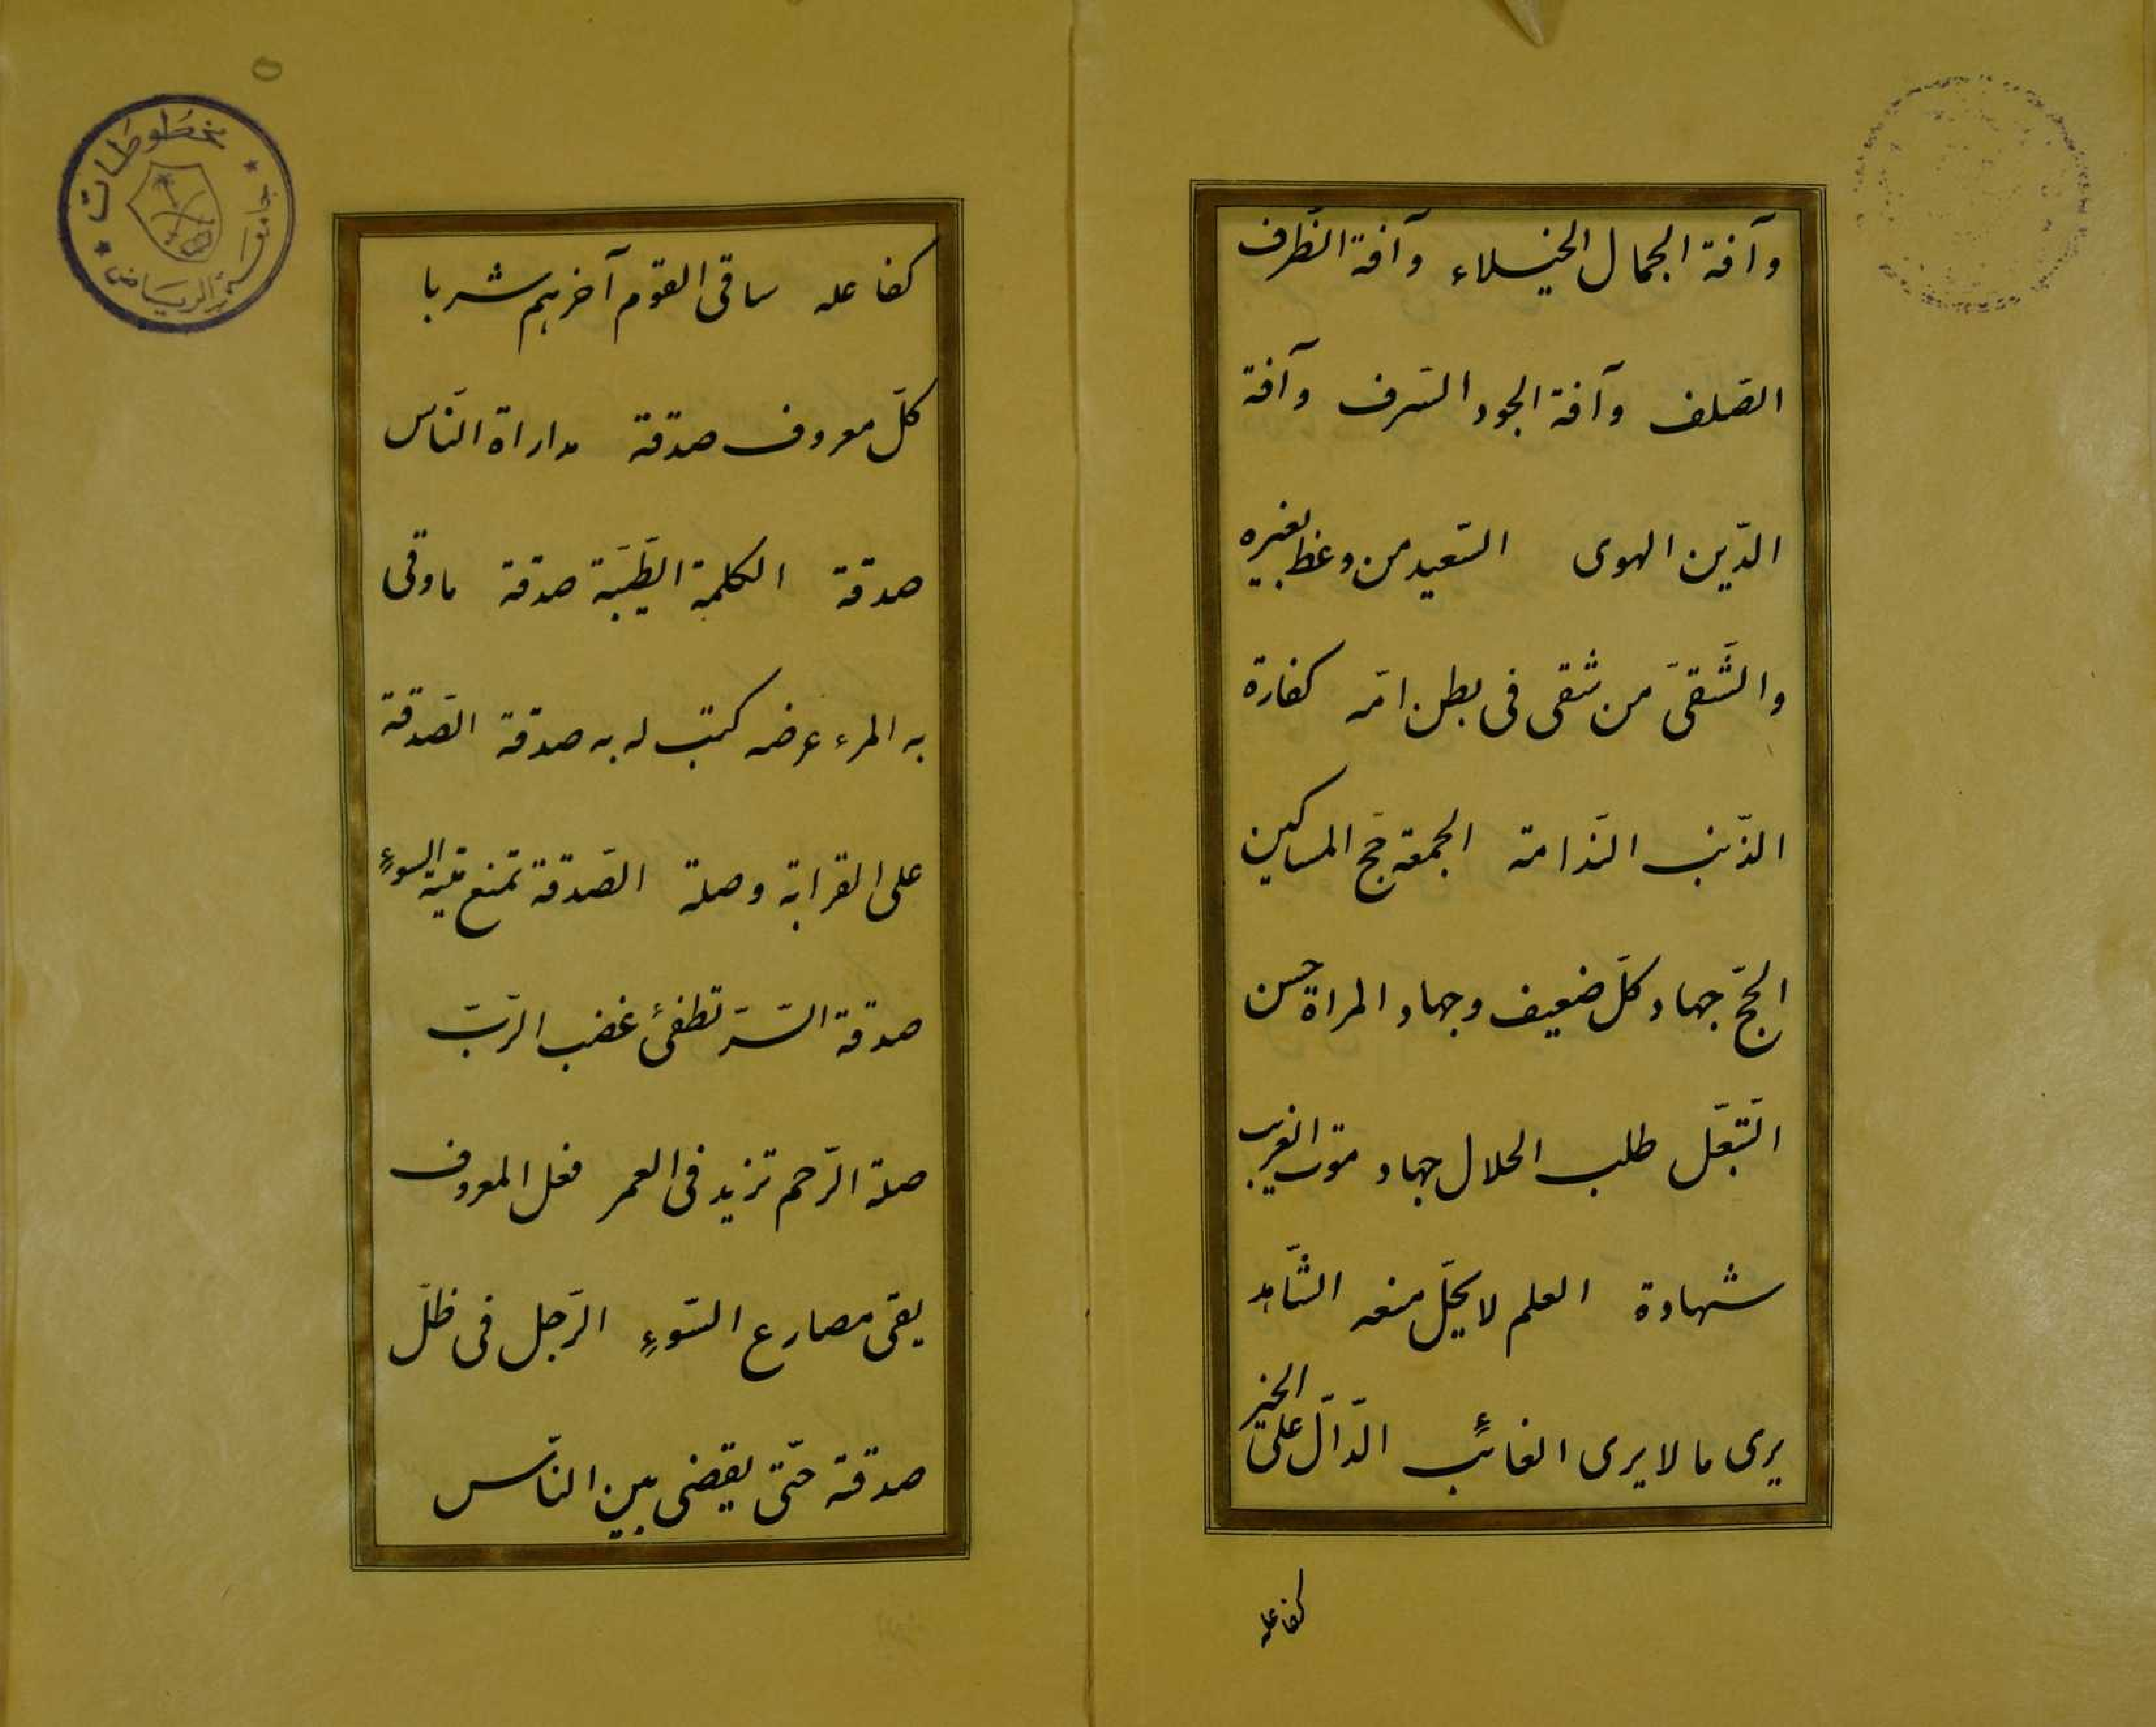 وآفة الجمال الخيلاء وآفة الظرف
الصّلف وآفة الجود السّرف وآفة
الدّين الهوى السّعيد من وعظ بغيره
والشّقىّ من شقى فى بطن امّه كفارة
الذّنب النّدامة الجمعة حجّ المساكين
الحجّ جهاد كلّ ضعيف وجهاد المراة حسن
التّبعّل طلب الحلال جهاد موت الغريب
شهادة العلم لا يحلّ منعه الشّاهد
يرى ما لا يرى الغائب الدّالّ على الخير
كفاعله
كفاعله ساقى القوم آخرهم شربا
كلّ معروف صدقة مداراة النّاس
صدقة الكلمة الطّيّبة صدقة ما وقى
به المرء عرضه كتب له به صدقة الصّدقة
على القرابة وصلة الصّدقة تمنع ميتة السوء
صدقة السّرّ تطفئ غضب الرّبّ
صلة الرّحم تزيد فى العمر فعل المعروف
يقى مصارع السّوء الرّجل فى ظلّ
صدقة حتّى يقضى بين النّاس
٥
مخطوطات
جامعة الرياض